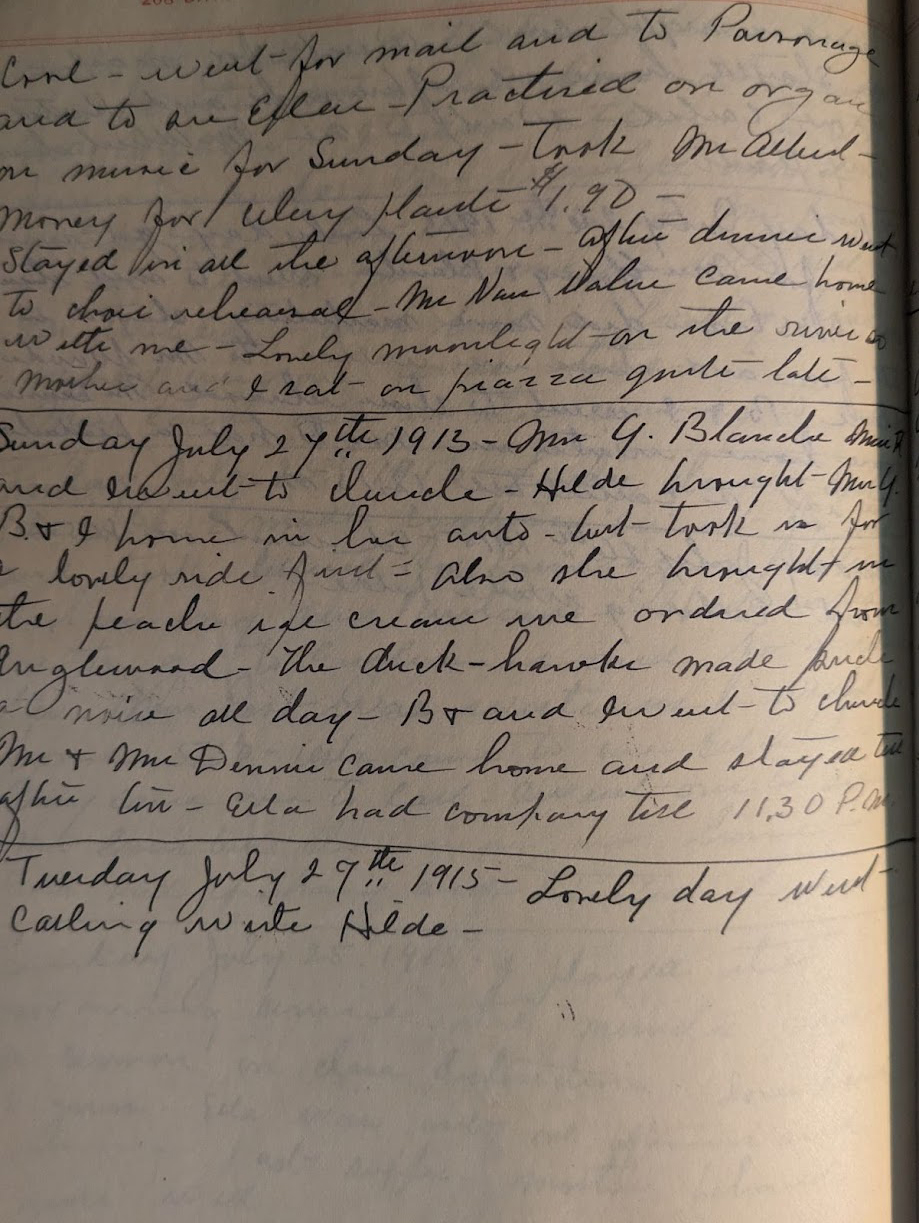 Cool - went for mail and to Parsonage
and to see Ellen - Practiced on organ
on music for Sunday - Took Mr Allud-
money for celery plants $1.90 -
Stayed in all the afternoon - after dinner went
to choir rehearsal - Mr Van Valen came home
with me - Lovely moonlight on the river so
Mother and I sat on piazza quite late -
Sunday July 27th 1913 - Mrs G. Blanche
and I went to church - Hilde brought Mrs G.
B & I home in her auto - but took us for
a lovely ride first - also she brought us
the peach ice cream we ordered from
Englewood - The duck-hawks made such
a noise all day - B & and I went to church
Mr & Mrs Dennis came home and stayed till
after ten - Ella had company till 11.30 P.M.
Tuesday July 27th 1915 - Lovely day went
calling with Hilde -